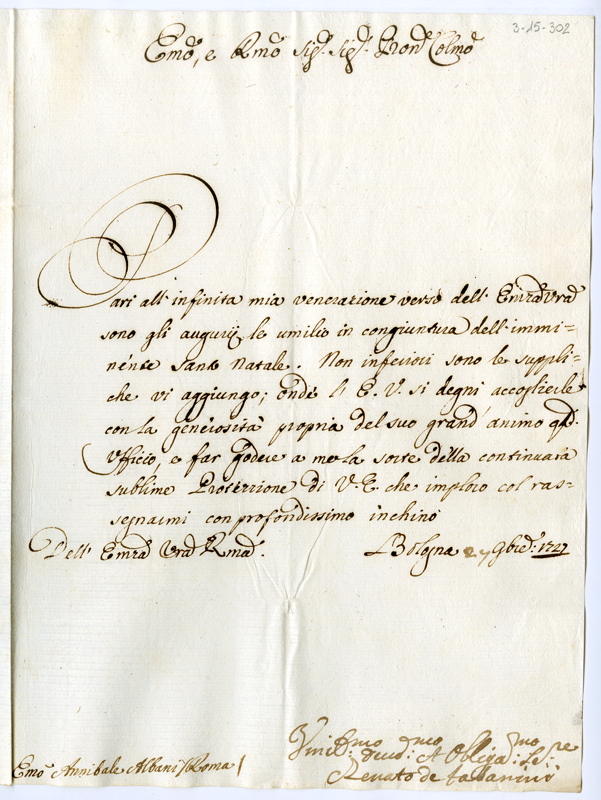 3-15-302
Emo, e Rmo Sigr. Sigr. Pron Colmo
Pari all'infinita mia venerazione verso dell' Eminza Vra
sono gli augurij, le umilio in congiuntura dell'immi=
nente santo Natale. Non inferiori sono le suppli=
che vi aggiungo; onde l'E. V. si degni accoglierle
con la generosità propria del suo grand'animo qd.
Ufficio, e far godere a me la sorte della continuata
sublime Protezzione di V. E. che imploro col ras=
segnarmi con profondissimo inchino
Dell' Emza Vra Rma. Bologna 27 9bre: 1727
Umilmo Devmo Obligmo
Renato de
Emo Annibale Albani / Roma /